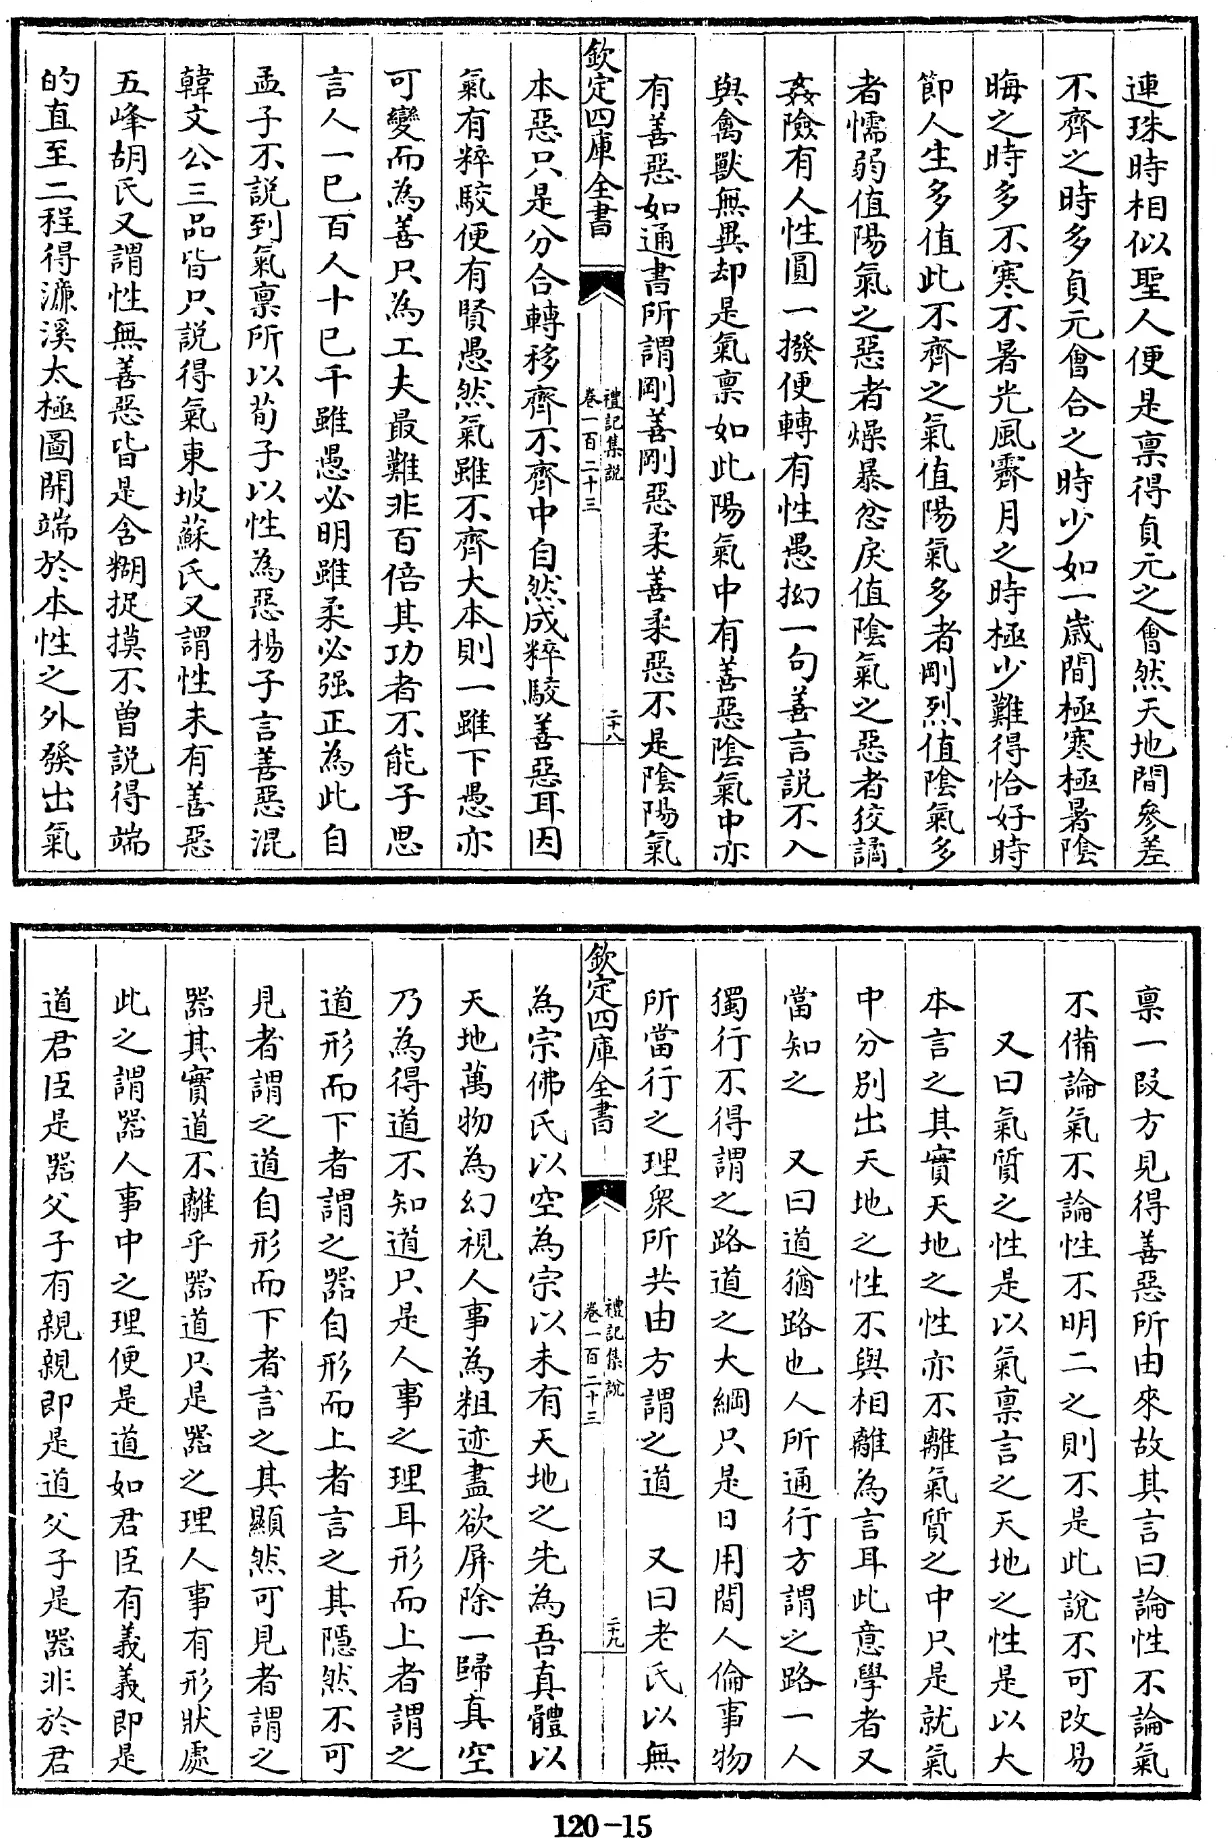 連珠時相似聖人便是禀得貞元之㑹然天地間參差
不齊之時多貞元㑹合之時少如一歲間極寒極暑陰
晦之時多不寒不暑光風霽月之時極少難得恰好時
節人生多值此不齊之氣值陽氣多者剛烈值陰氣多
者懦弱值陽氣之惡者燥暴忿戾值陰氣之惡者狡譎
姦險有人性圓一撥便轉有性愚拗一句善言說不入
與禽獸無異却是氣禀如此陽氣中有善惡陰氣中亦
有善惡如通書所謂剛善剛惡柔善柔惡不是陰陽氣
欽定四庫全書
禮記集說
卷一百二十三
二十八
本惡只是分合轉移齊不齊中自然成粹駮善惡耳因
氣有粹駮便有賢愚然氣雖不齊大本則一雖下愚亦
可變而為善只為工夫最難非百倍其功者不能子思
言人一已百人十已千雖愚必明雖柔必强正為此自
孟子不說到氣禀所以荀子以性為惡楊子言善惡混
韓文公三品皆只說得氣東坡蘇氏又謂性未有善惡
五峰胡氏又謂性無善惡皆是含糊捉摸不曾説得端
的直至二程得濂溪太極圖開端於本性之外發出氣
禀一段方見得善惡所由來故其言曰論性不論氣
不備論氣不論性不明二之則不是此說不可改易
又曰氣質之性是以氣禀言之天地之性是以大
本言之其實天地之性亦不離氣質之中只是就氣
中分别出天地之性不與相離為言耳此意學者又
當知之 又曰道猶路也人所通行方謂之路一人
獨行不得謂之路道之大綱只是日用間人倫事物
所當行之理衆所共由方謂之道 又曰老氏以無
欽定四庫全書
禮記集說
卷一百二十三
二十九
為宗佛氏以空為宗以未有天地之先為吾真體以
天地萬物為幻視人事為粗迹盡欲屏除一歸真空
乃為得道不知道只是人事之理耳形而上者謂之
道形而下者謂之器自形而上者言之其隱然不可
見者謂之道自形而下者言之其顯然可見者謂之
器其實道不離乎器道只是器之理人事有形狀處
此之謂器人事中之理便是道如君臣有義義即是
道君臣是器父子有親親即是道父子是器非於君
120-15